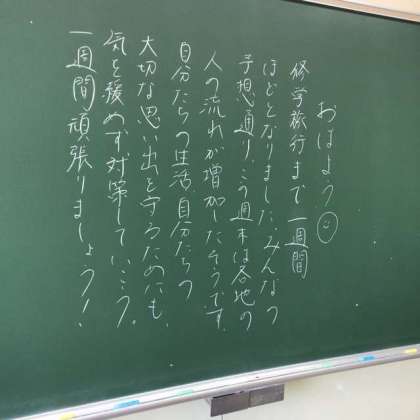 おはよう☺
修学旅行まで一週間
ほどとなりました。みんなの
予想通り、この週末は各地の
人の流れが増加したそうです。
自分たちの生活、自分たちの
大切な思い出を守るためにも、
気を緩めず対策していこう。
一週間頑張りましょう！